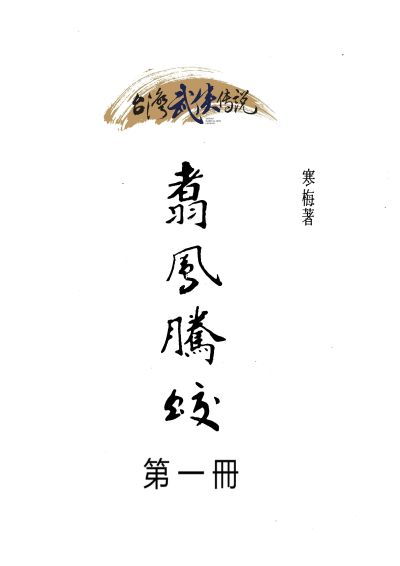 台灣武俠傳説
寒梅著
翥鳳騰蛟
第一冊